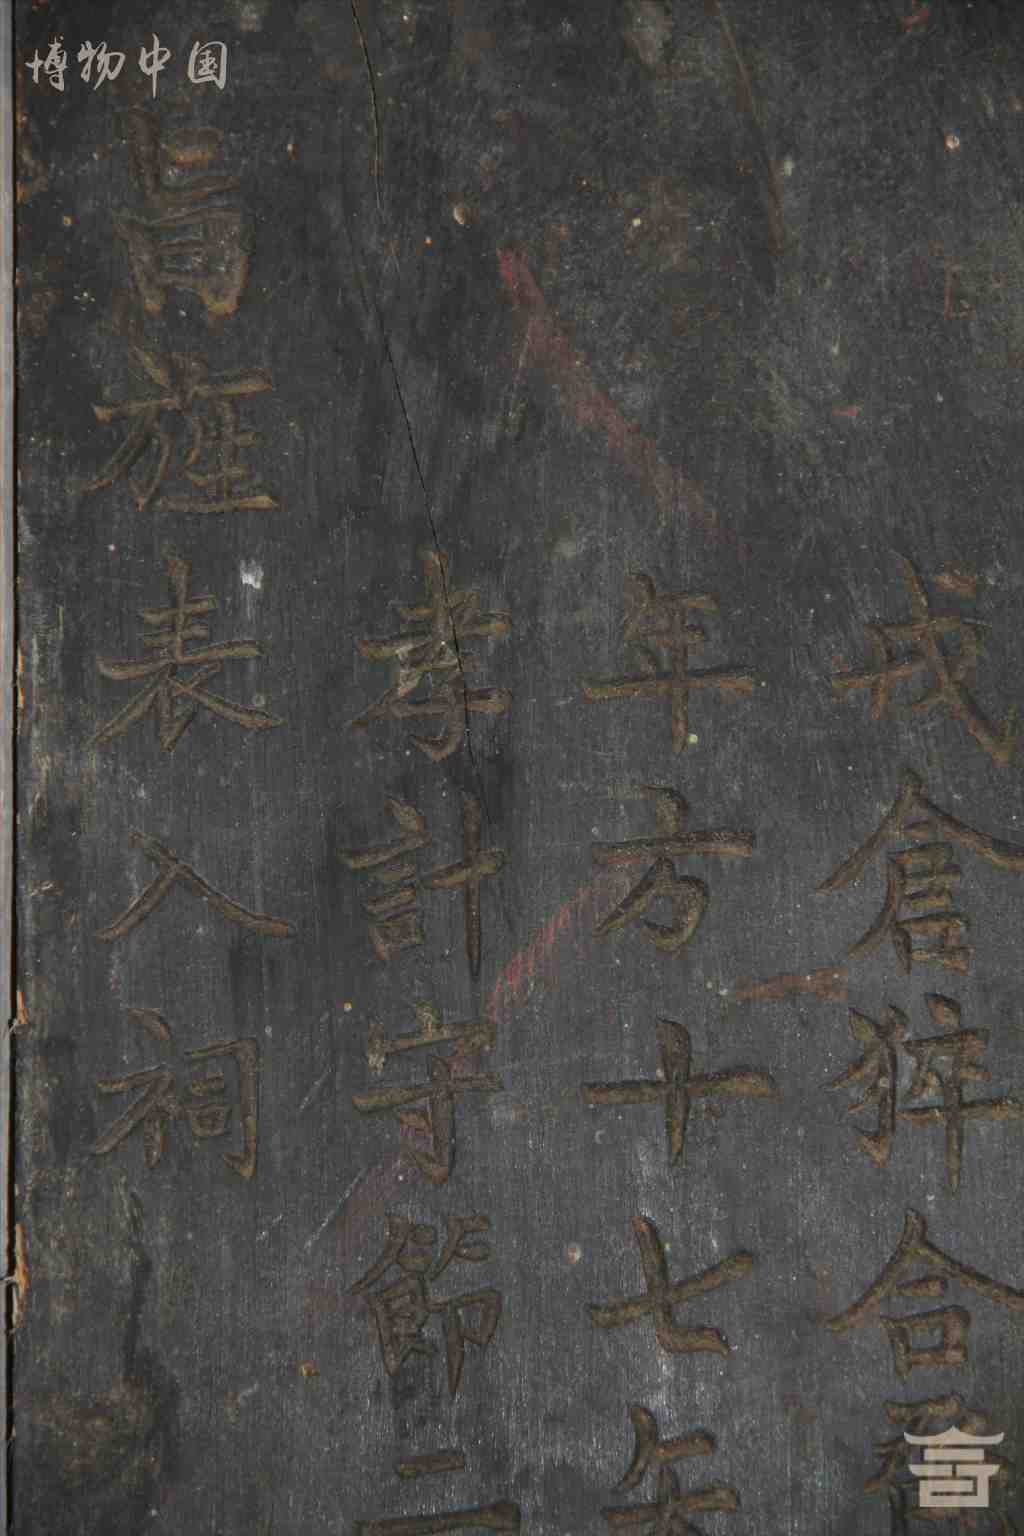 博物中国
戍倉猝合
年方十七矢
孝計守節二
旨旌表入祠